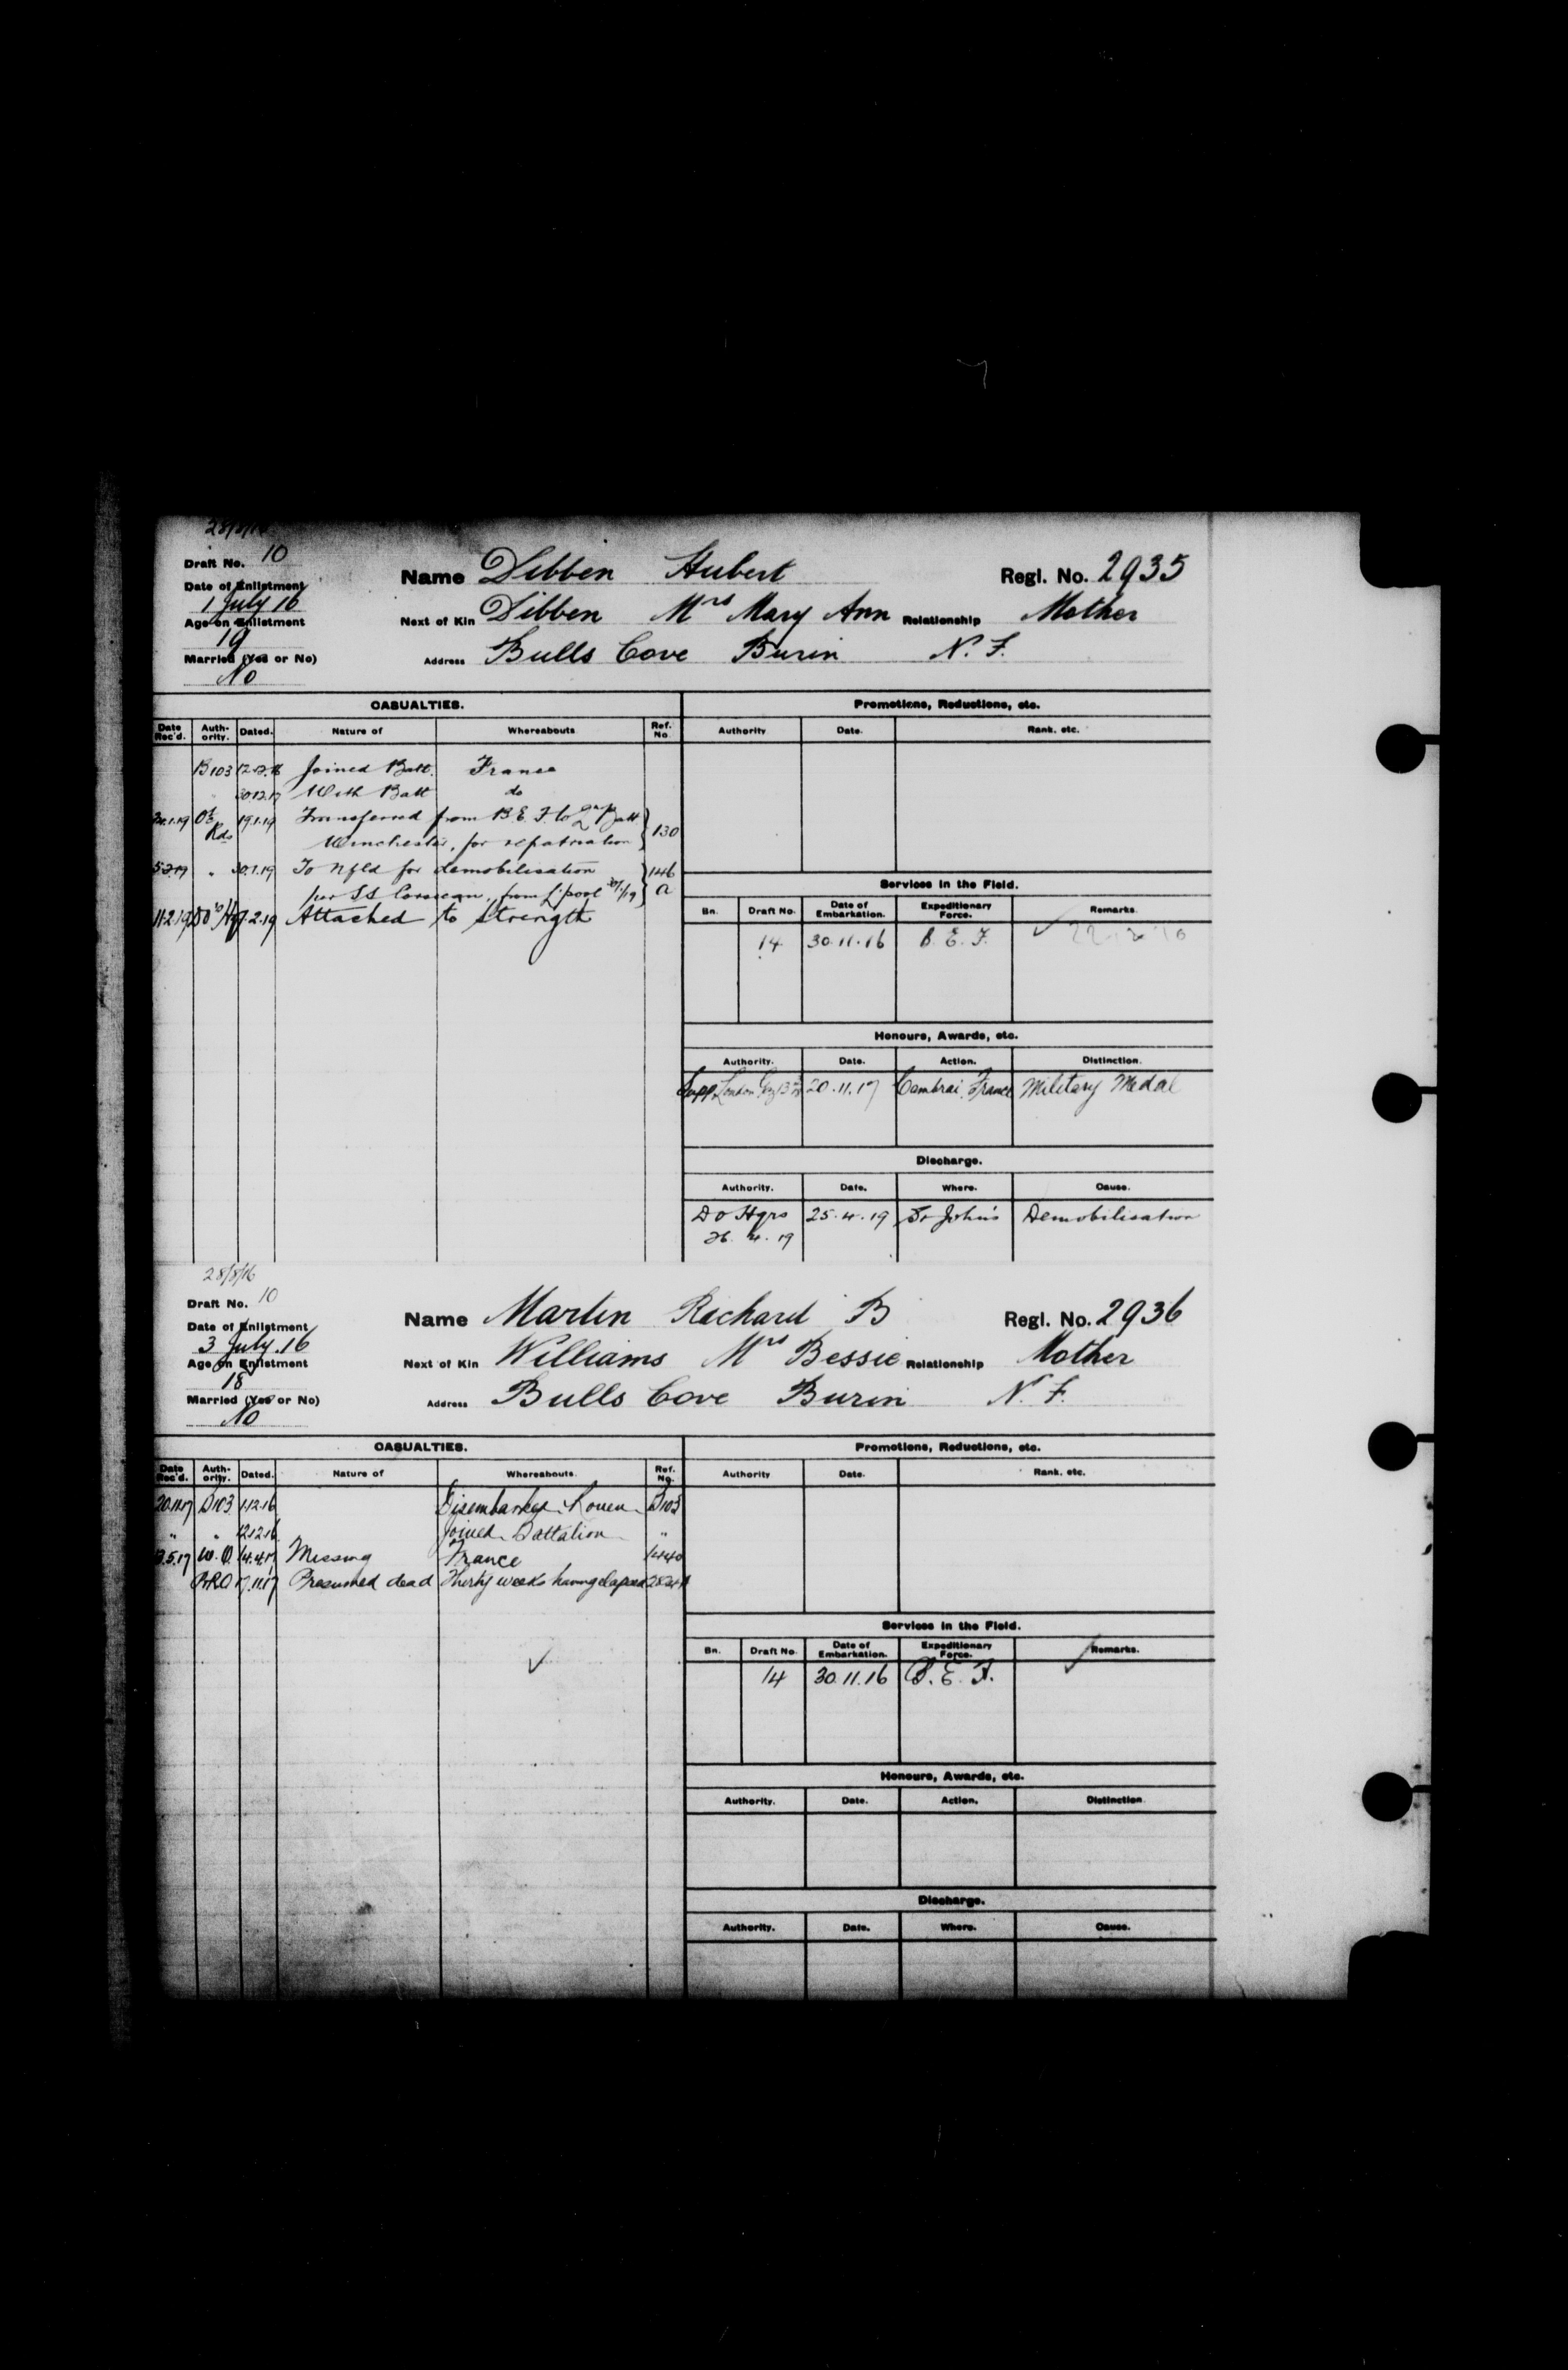 Draft No. 10
Name Dibben Hubert Regl. No. 2935
Date of Enlistment
1 July 16
Next of Kin Dibben Mrs Mary Ann Relationship Mother
Age on Enlistment
19
Address Bulls Cove Burin N. F.
Married (Yes or No)
No
CASUALTIES.
Date Rec'd. Auth-ority. Dated. Nature of Whereabouts Ref. No.
B103 12.12.16 Joined Batt. France
" 30.12.17 With Batt do
19.1.19 Transferred from B.E.F. to 2nd Batt
Winchester, for repatriation 130
5.2.19 " 30.1.19 To Nfld for demobilisation 146
per SS Corsican, from L'pool 30/1/19 a
11.2.19 7.2.19 Attached to Strength
Promotions, Reductions, etc.
Authority Date. Rank, etc.
Services in the Field.
Bn. Draft No. Date of Embarkation. Expeditionary Force. Remarks.
14 30.11.16 B. E. F.
Honours, Awards, etc.
Authority. Date. Action. Distinction.
Supp London 20.11.17 Cambrai, France Military Medal
Discharge.
Authority. Date. Where. Cause.
D O Hqrs 25.4.19 St John's Demobilisation
26.4.19
28/8/16
Draft No. 10
Name Martin Richard B Regl. No. 2936
Date of Enlistment
3 July.16
Next of Kin Williams Mrs Bessie Relationship Mother
Age on Enlistment
18
Address Bulls Cove Burin N. F.
Married (Yes or No)
No
CASUALTIES.
Date Rec'd. Auth-ority. Dated. Nature of Whereabouts. Ref. No.
B103 1.12.16 Disembarked Rouen B103
" " 12.12.16 Joined Battalion "
W.O. 14.4.17 Missing France
17.11.17 Presumed dead Thirty weeks having elapsed
Promotions, Reductions, etc.
Authority Date. Rank, etc.
Services in the Field.
Bn. Draft No. Date of Embarkation. Expeditionary Force. Remarks.
14 30.11.16 B. E. F.
Honours, Awards, etc.
Authority. Date. Action. Distinction
Discharge.
Authority. Date. Where. Cause.